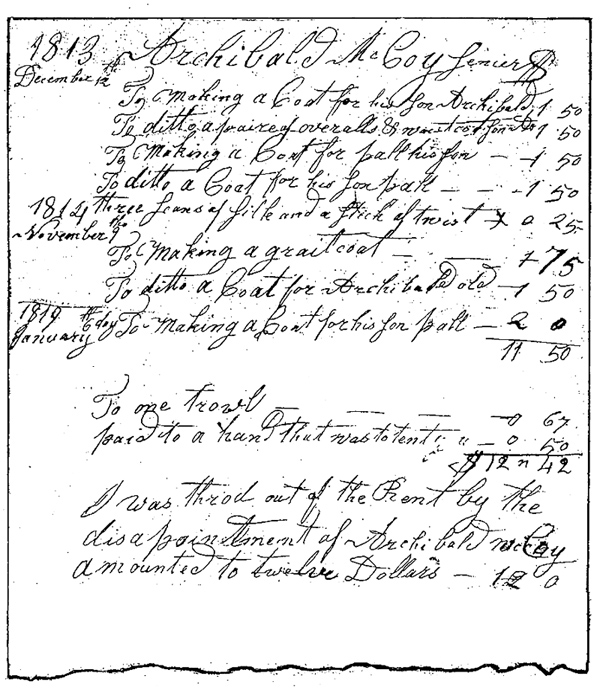 1813 Archibald McCoy senier $
December 12th
To Making a Coat for his son Archibald 1 50
To ditto a paire of overalls & wastcoat son Do 1 50
To Making a Coat for pall his son – – 1 50
To ditto a Coat for his son pall – – – 1 50
1814 three scans of silk and a stick of twist 0 25
November
To Making a grait coat – – 1 75
To ditto a Coat for Archibald old – 1 50
1819 6th day To Making a Coat for his son pall – 2 0
January
11 50
To one trowl – – – – 0 67
paid to a hand that was to tent " " – 0 50
$ 12 " 42
I was throd out of the Rent by the
disapointment of Archibald McCoy
amounted to twelve Dollars – 12 0